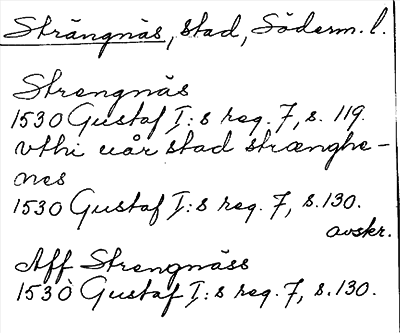 Strängnäs, stad, Söderm. l.
Strengnäs
1530 Gustaf I:s reg. 7, s. 119.
vthi uår stad strænghe-
nes
1530 Gustaf I:s reg. 7, s. 130.
avskr.
Aff Strengnäss
1530 Gustaf I:s reg. 7, s. 130.